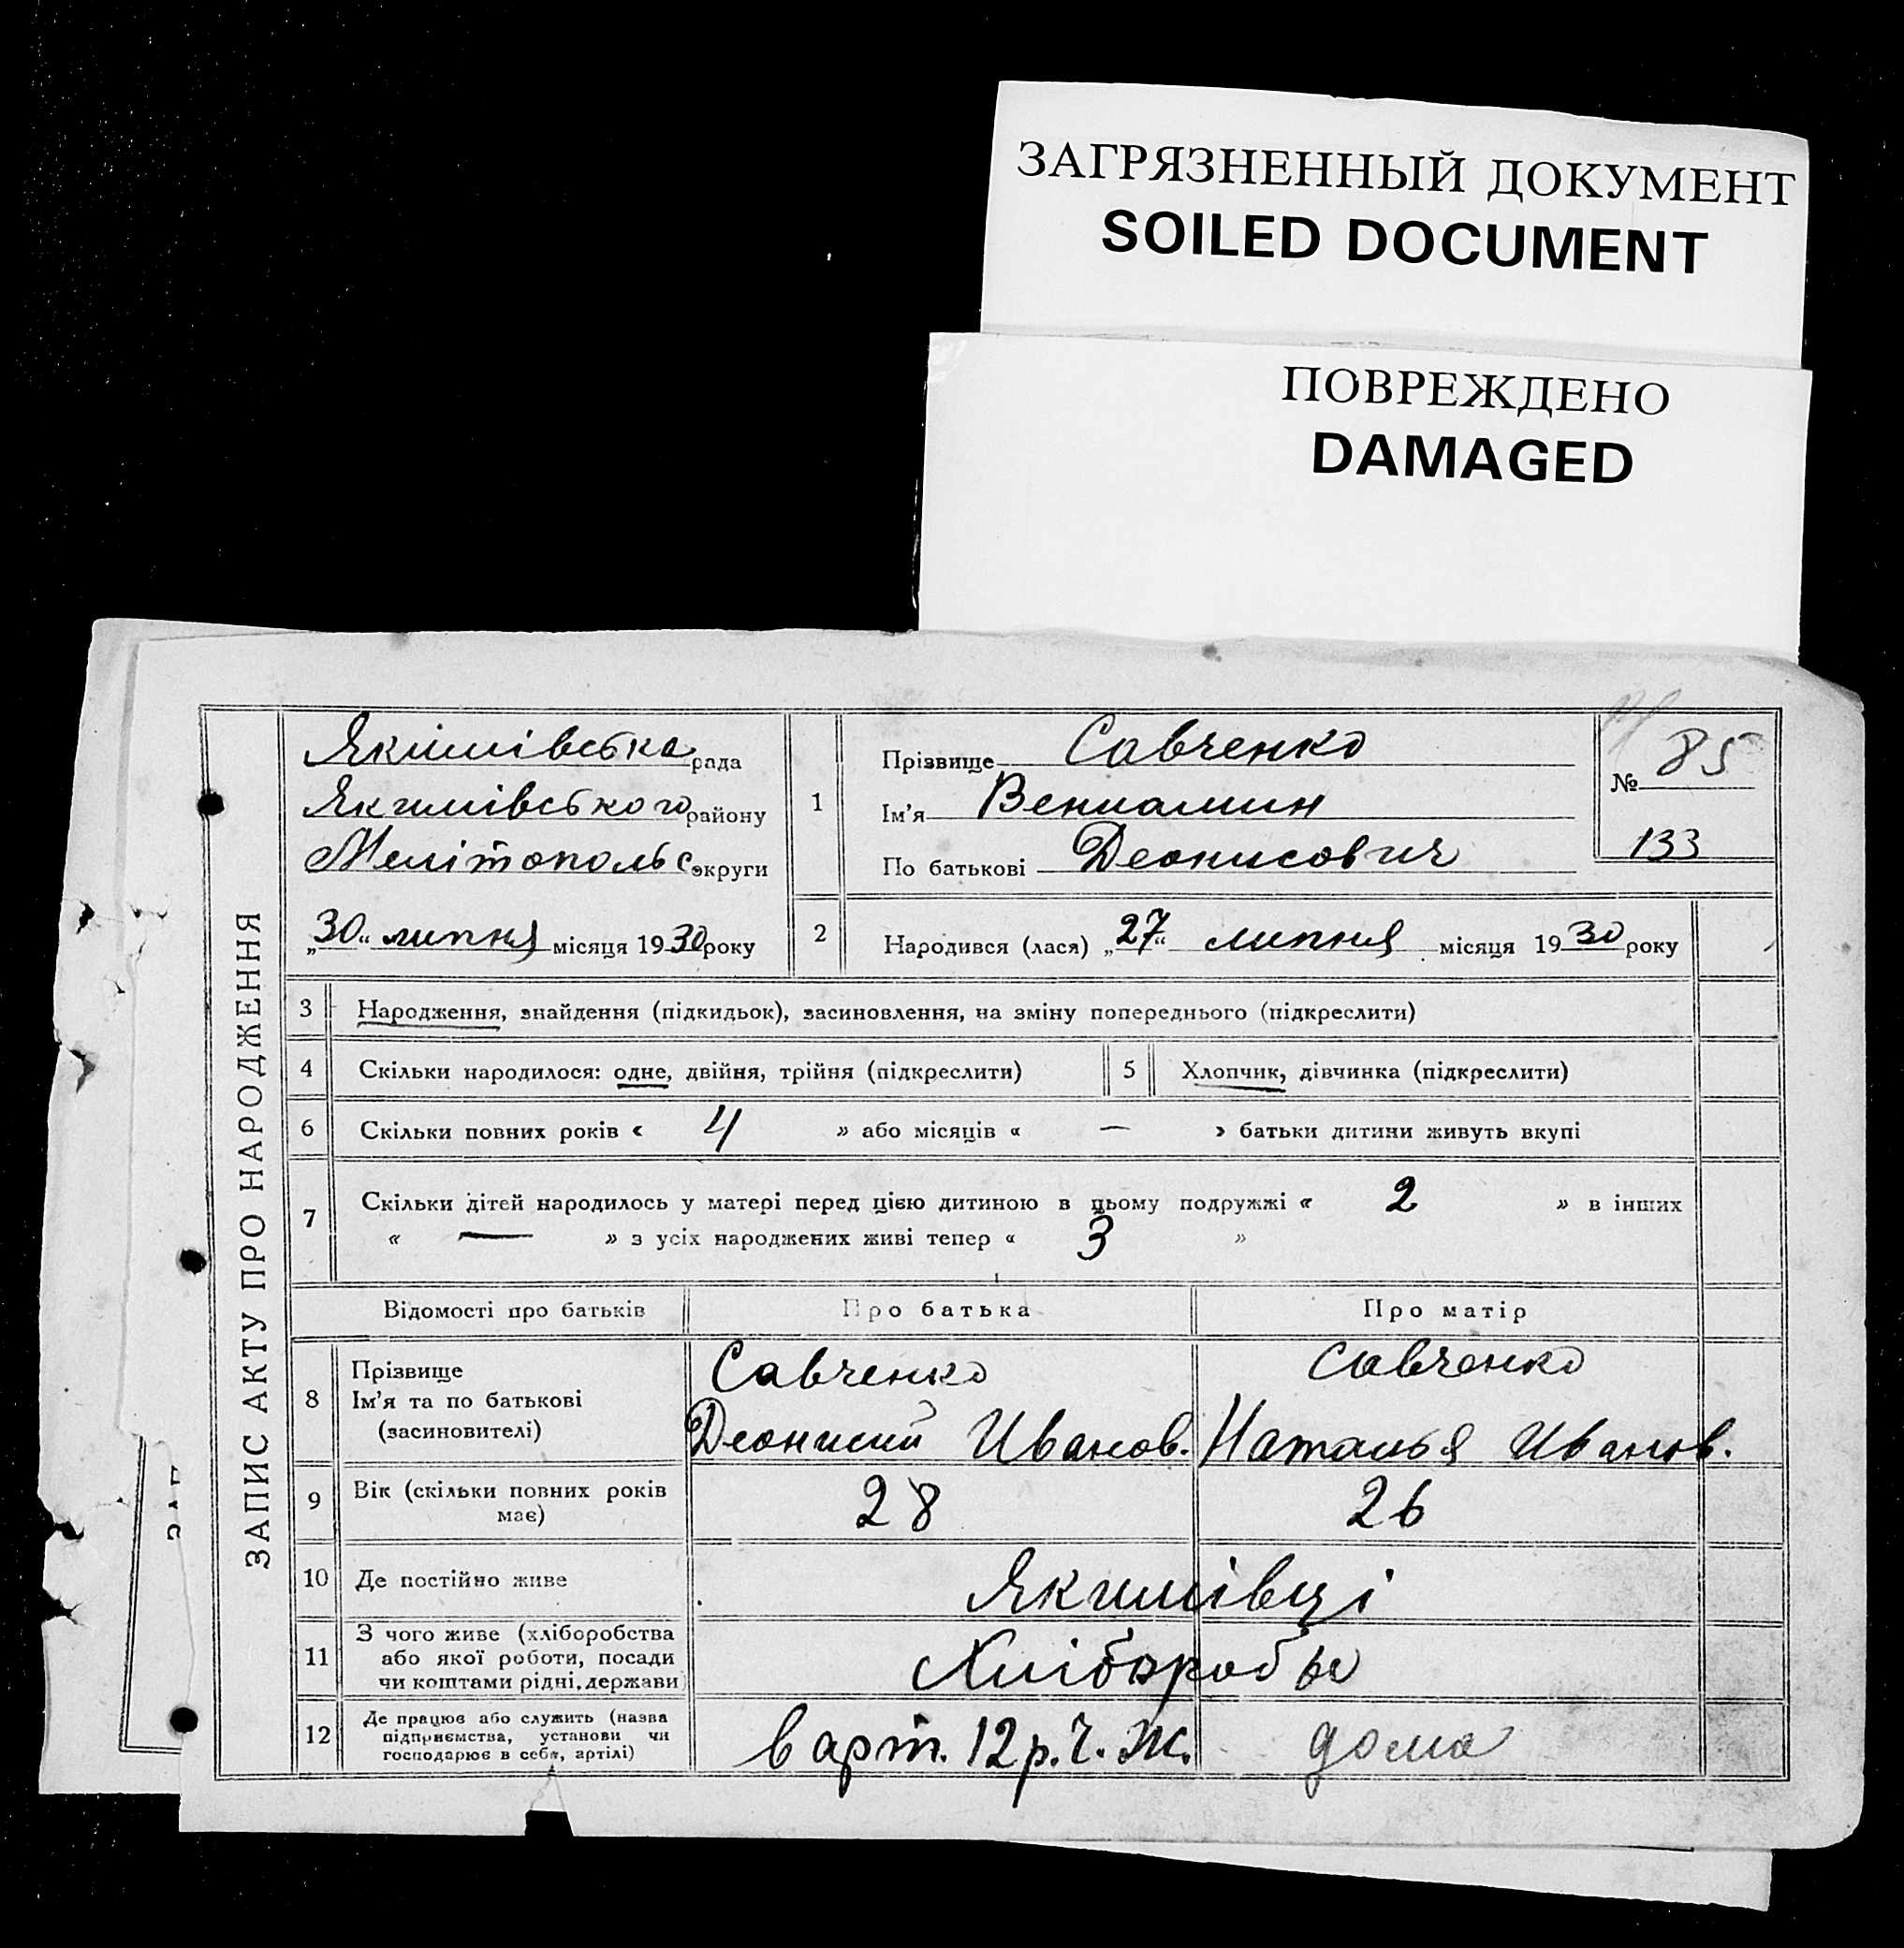 ЗАГРЯЗНЕННЫЙ ДОКУМЕНТ
SOILED DOCUMENT
ПОВРЕЖДЕНО
DAMAGED
ЗАПИС АКТУ ПРО НАРОДЖЕННЯ
Якимівська рада
Якимівського району
Мелітопольс округи
„30“ липня місяця 1930 року
1
Прізвище Савченко
Ім'я Вениамин
По батькові Деонисович
№ 85
133
2
Народився (лася) „27“ липня місяця 1930 року
3 Народження, знайдення (підкидьок), засиновлення, на зміну попереднього (підкреслити)
4 Скільки народилося: одне, двійня, трійня (підкреслити) 5 Хлопчик, дівчинка (підкреслити)
6 Скільки повних років « 4 » або місяців « — » батьки дитини живуть вкупі
7 Скільки дітей народилось у матері перед цією дитиною в цьому подружжі « 2 » в інших
« — » з усіх народжених живі тепер « 3 »
Відомості про батьків Про батька Про матір
8 Прізвище Савченко Савченко
Ім'я та по батькові Деонисий Иванов. Наталья Иванов.
(засиновителі)
9 Вік (скільки повних років має) 28 26
10 Де постійно живе Якимівці
11 З чого живе (хліборобства
або якої роботи, посади
чи коштами рідні, держави) Хлібороби
12 Де працює або служить (назва
підприємства, установи чи
господарює в себе, артілі) в арт. 12 р. Ч. Ж. дома